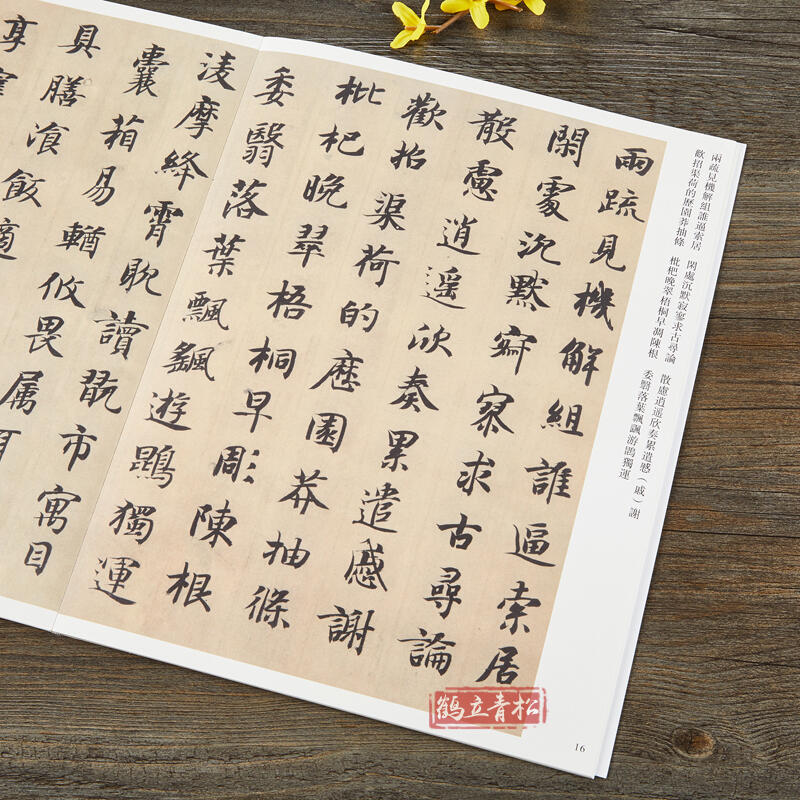 兩疏見機解組誰逼索居　閑處沉默寂寥求古尋論　散慮逍遥欣奏累遣慼（戚）謝
歡招渠荷的歷園莽抽條　枇杷晚翠梧桐早凋陳根　委翳落葉飄颻游鵾獨運
兩疏見機解組誰逼索居
閑處沉默寂寥求古尋論
散慮逍遥欣奏累遣慼謝
歡招渠荷的歷園莽抽條
枇杷晚翠梧桐早彫陳根
委翳落葉飄颻遊鵾獨運
淩摩絳霄耽讀翫市寓目
囊箱易輶攸畏属耳
具膳飡飯適
鹤立青松
16